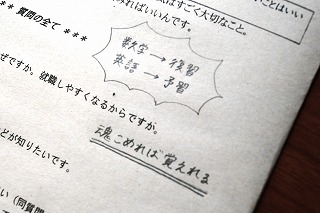 はすごく大切なこと。
とはいい
みればいいんです。
** 質問の全て ***
数学→復習
英語→予習
ぜですか。就職しやすくなるからですが。
魂こめれば覚えれる
とが知りたいです。
い(同質問